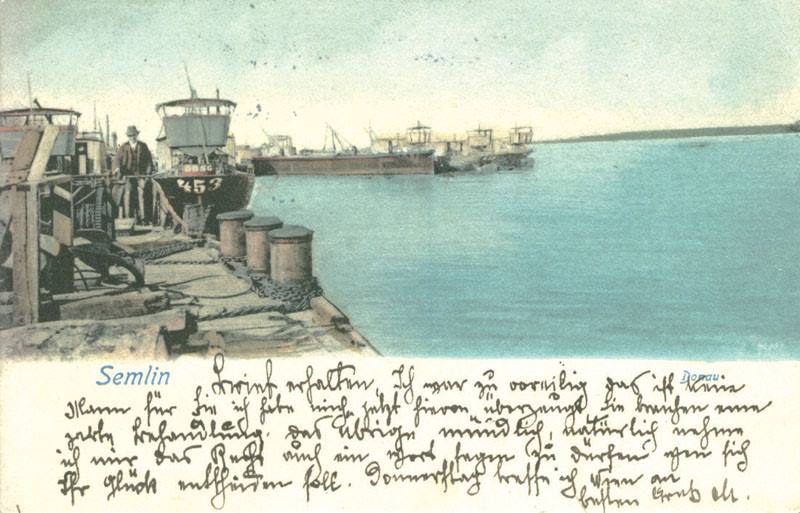 DDSG
453
Semlin
Donau
Brief erhalten, Ich war zu voreilig das ist keine
Mann für Sie ich habe mich jetzt hievon überzeugt Sie brauchen eine
zarte Behandlung. das übrige mündlich, natürlich nehme
ich mir das Recht auch ein Wort sagen zu dürfen wen sich
Ihr Glück entscheiden soll. Donnerstag treffe ich Wien an
besten Gruß